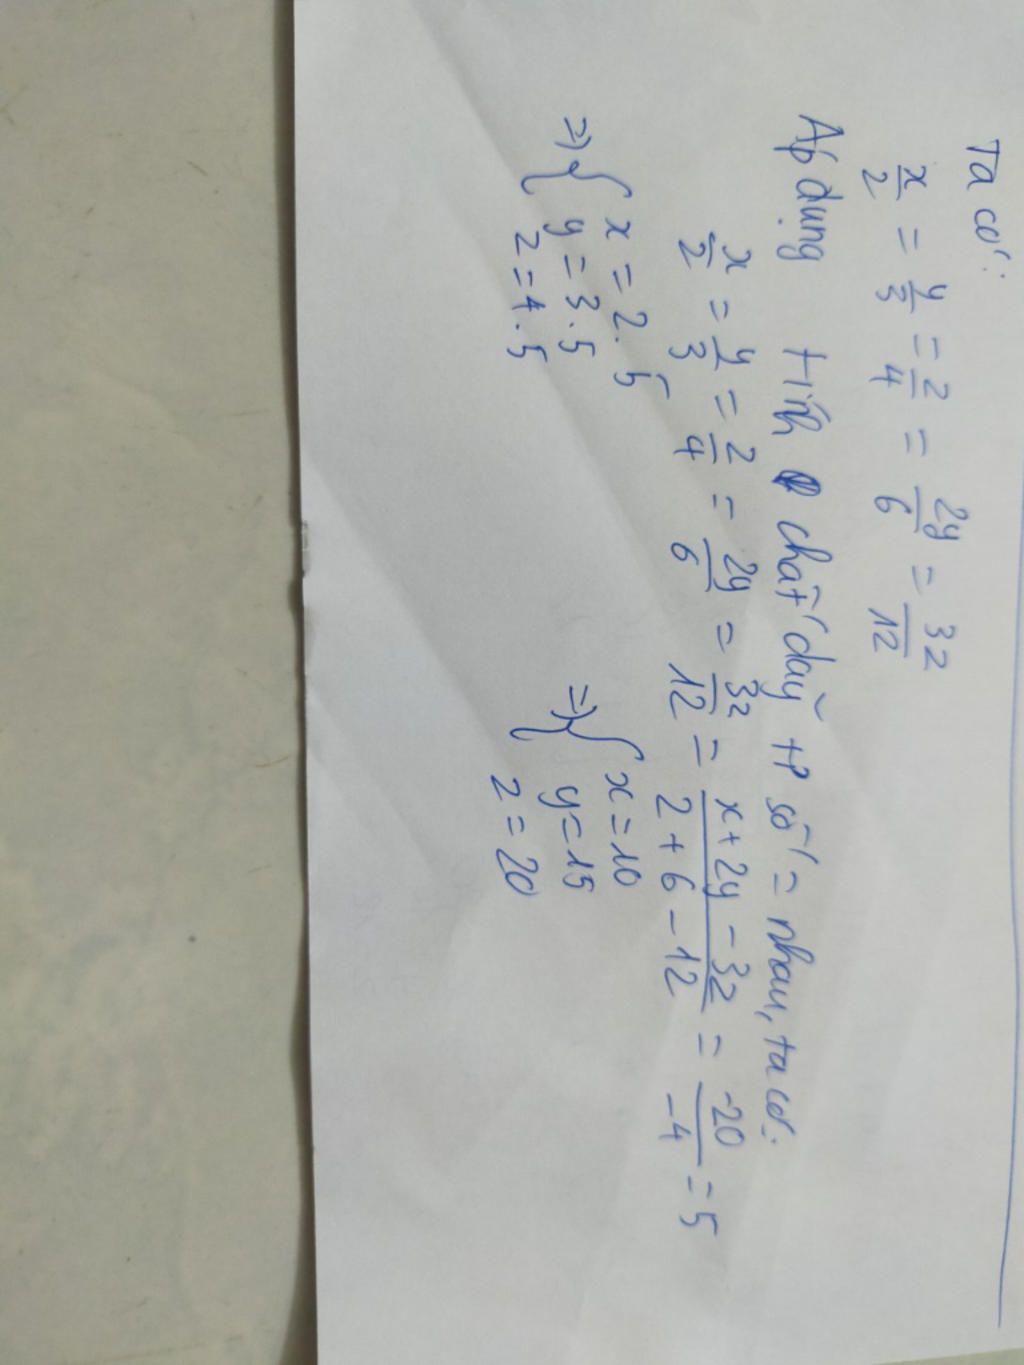 Ta có:
x/2 = y/3 = z/4 = 2y/6 = 3z/12
Áp dụng tính chất dãy tỉ số = nhau, ta có:
x/2 = y/3 = z/4 = 2y/6 = 3z/12 = (x+2y-3z)/(2+6-12) = -20/-4 = 5
=> { x = 2.5 => { x = 10
y = 3.5 y = 15
z = 4.5 z = 20